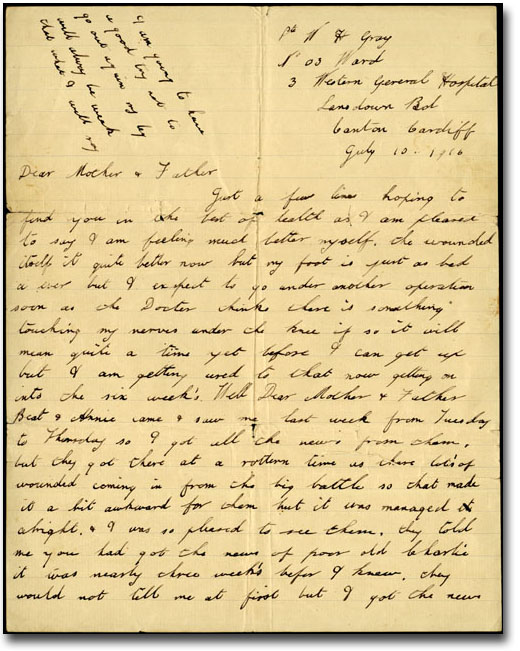 I am going to have
a good try not to
go out again my leg
will always be weak
that what I will say
Pte W H Gray
No 03 Ward
3 Western General Hospital
Lansdown Rd
Canton Cardiff
July 10 - 1916
Dear Mother & Father
Just a few lines hoping to
find you in the best of health as I am pleased
to say I am feeling much better myself, the wounded
itself it quite better now but my foot is just as bad
a ever but I expect to go under another operation
soon as the Docter thinks there is something
touching my nerves under the knee if so it will
mean quite a time yet before I can get up
but I am getting used to that now getting on
into the six week's. Well Dear Mother & Father
Beat & Annie came & saw me last week from Tuesday
to Thursday so I got all the news from them,
but they got there at a rottern time as there lot's of
wounded coming in from the big battle so that made
it a bit awkward for them but it was managed
alright. & I was so pleased to see them. they told
me you had got the news of poor old Charlie
it was nearly three week's befor I knew. they
would not tell me at first but I got the news